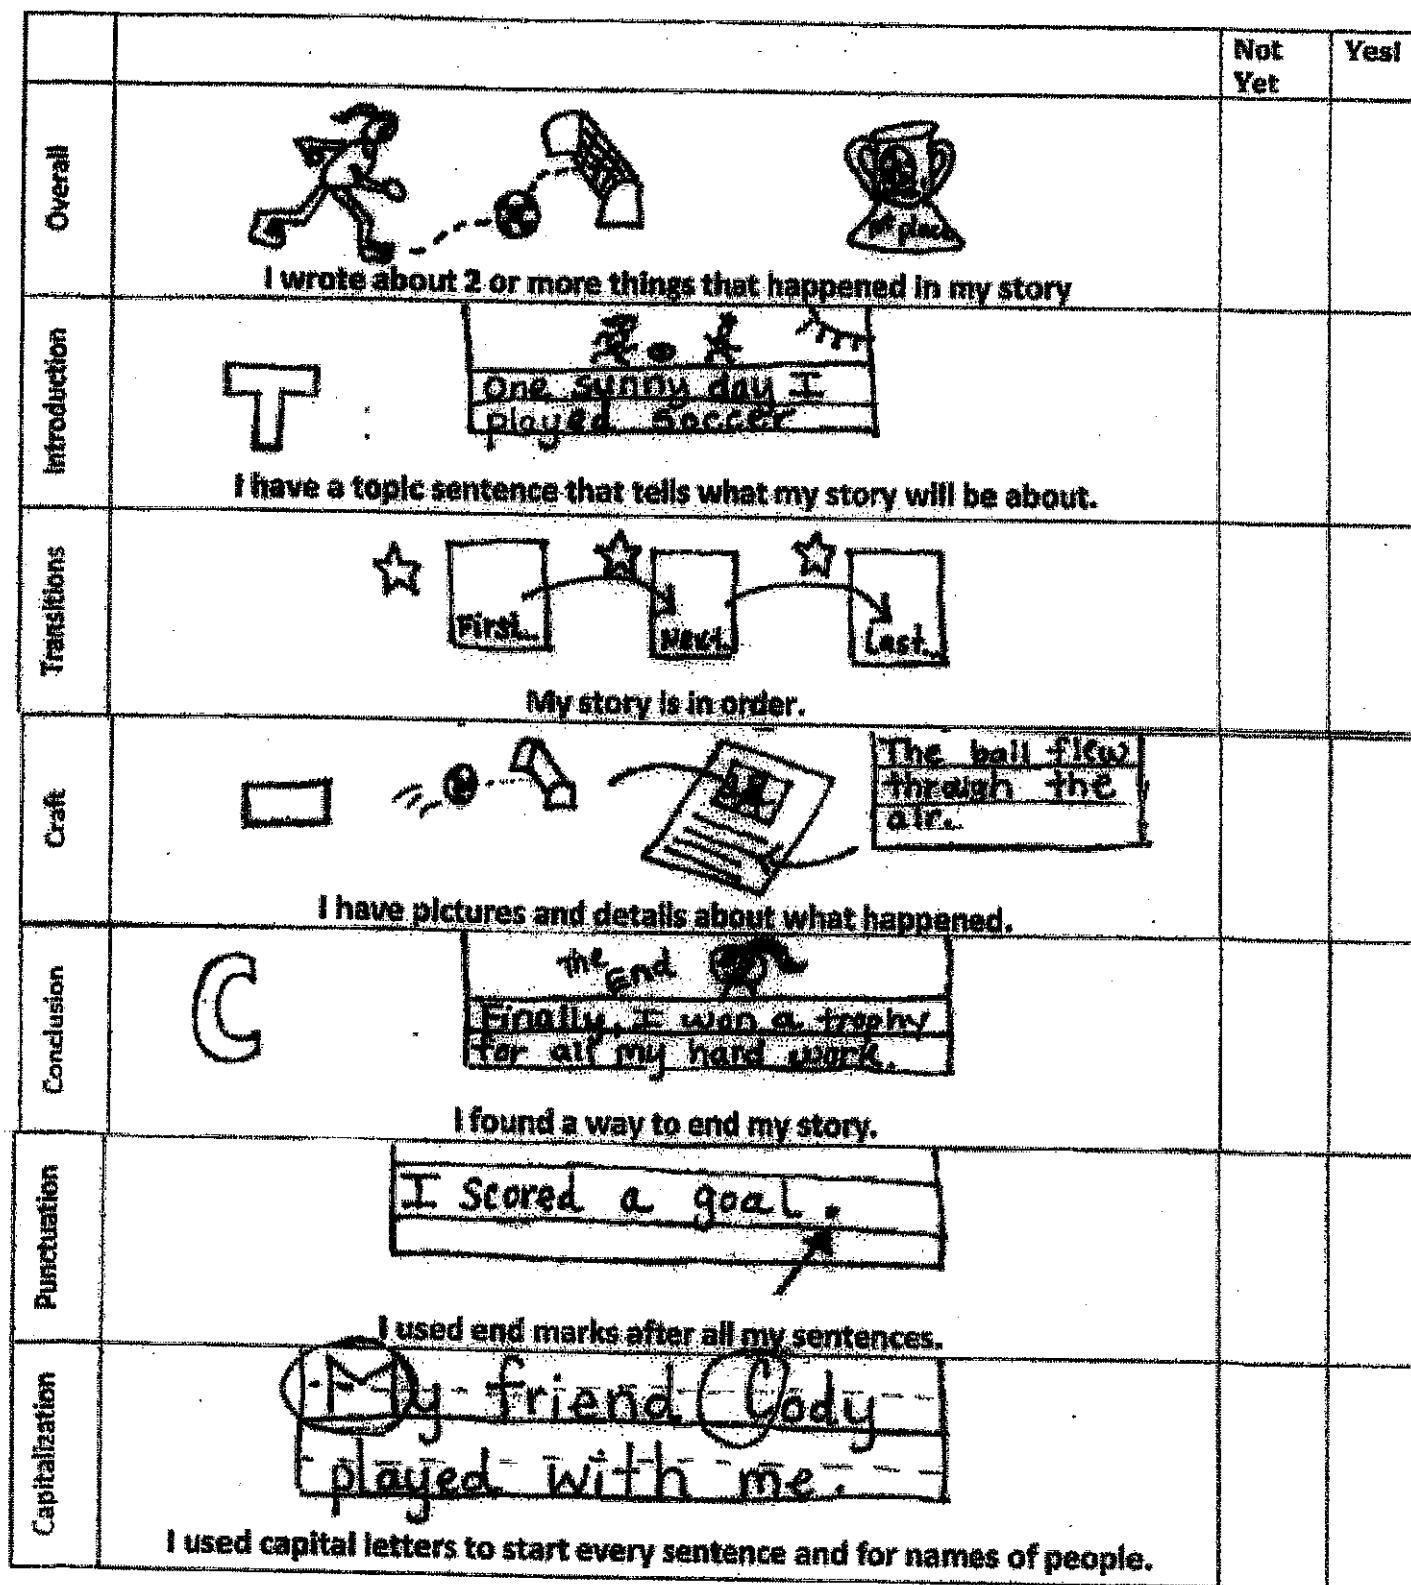 Not Yet
Yes!
Overall
1st place
I wrote about 2 or more things that happened in my story
Introduction
T
One sunny day I
played soccer
I have a topic sentence that tells what my story will be about.
Transitions
First...
Next..
Last...
My story is in order.
Craft
The ball flew
through the
air.
I have pictures and details about what happened.
Conclusion
C
The End
Finally, I won a trophy
for all my hard work.
I found a way to end my story.
Punctuation
I scored a goal.
I used end marks after all my sentences.
Capitalization
My friend Cody
played with me.
I used capital letters to start every sentence and for names of people.